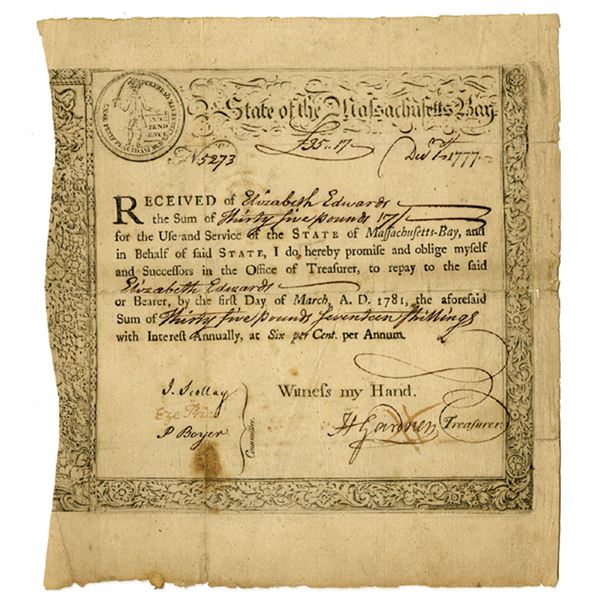 State of the Massachusetts Bay.
IN DE
PEND
ENCE
£35.17
No 5273
Decr 1st 1777
RECEIVED of Elizabeth Edwards
the Sum of Thirty five pounds 17/
for the Use and Service of the STATE of Massachusetts-Bay, and
in Behalf of said STATE, I do, hereby promise and oblige myself
and Successors in the Office of Treasurer, to repay to the said
Elizabeth Edwards
or Bearer, by the first Day of March, A. D. 1781, the aforesaid
Sum of Thirty five pounds Seventeen Shillings
with Interest Annually, at Six per Cent. per Annum.
Witness my Hand.
J. Scollay
Eze Price
P Boyer
Committee.
H Gardner Treasurer.